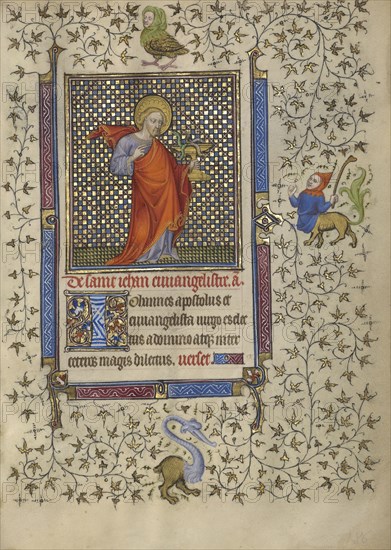 De saint iehan euuangelistre. a.
Iohannes apostolus et
euuangelista uirgo es elec
tus a domino atqz inter
ceteros magis dilectus. verset.